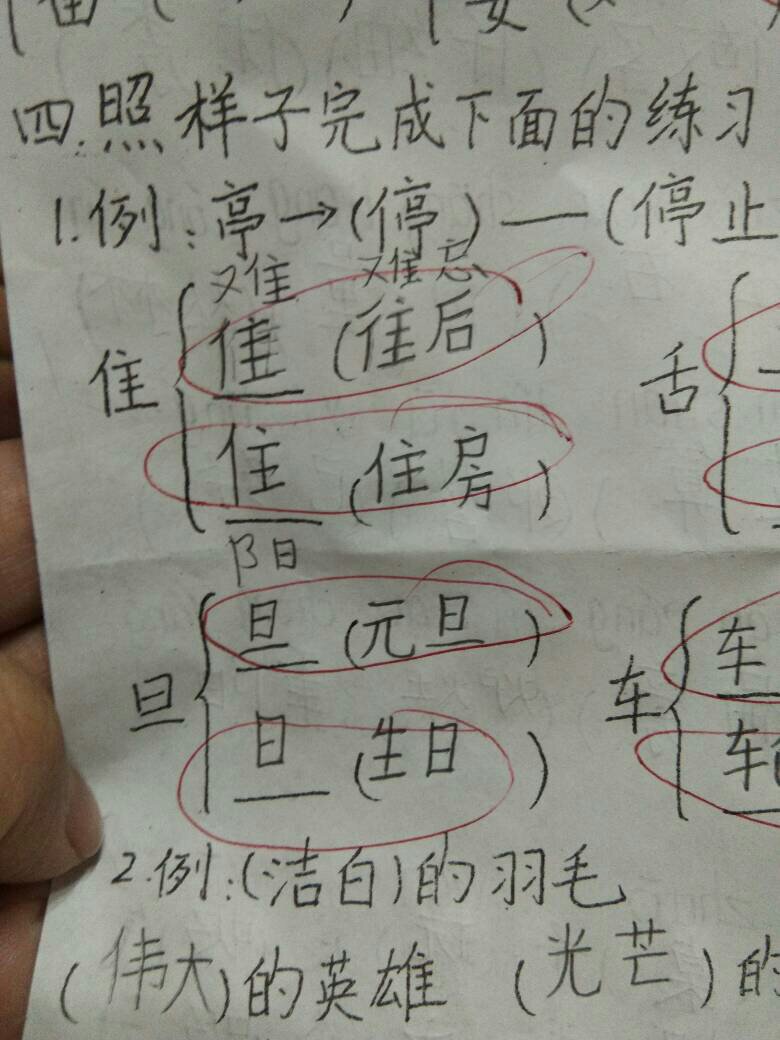 四.照样子完成下面的练习
1.例:亭→(停)—(停止
难 难忘
隹 隹 (往后)
住 (住房) 舌
阳
旦 旦 (元旦) 车 车
日 (生日) 车
2.例:(洁白)的羽毛
(伟大)的英雄 (光芒)的